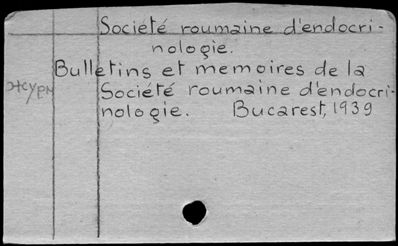 Société roumaine d'endocri-
nologie.
Bulletins et memoires de la
Société roumaine d'endocri-
nologie. Bucarest, 1939